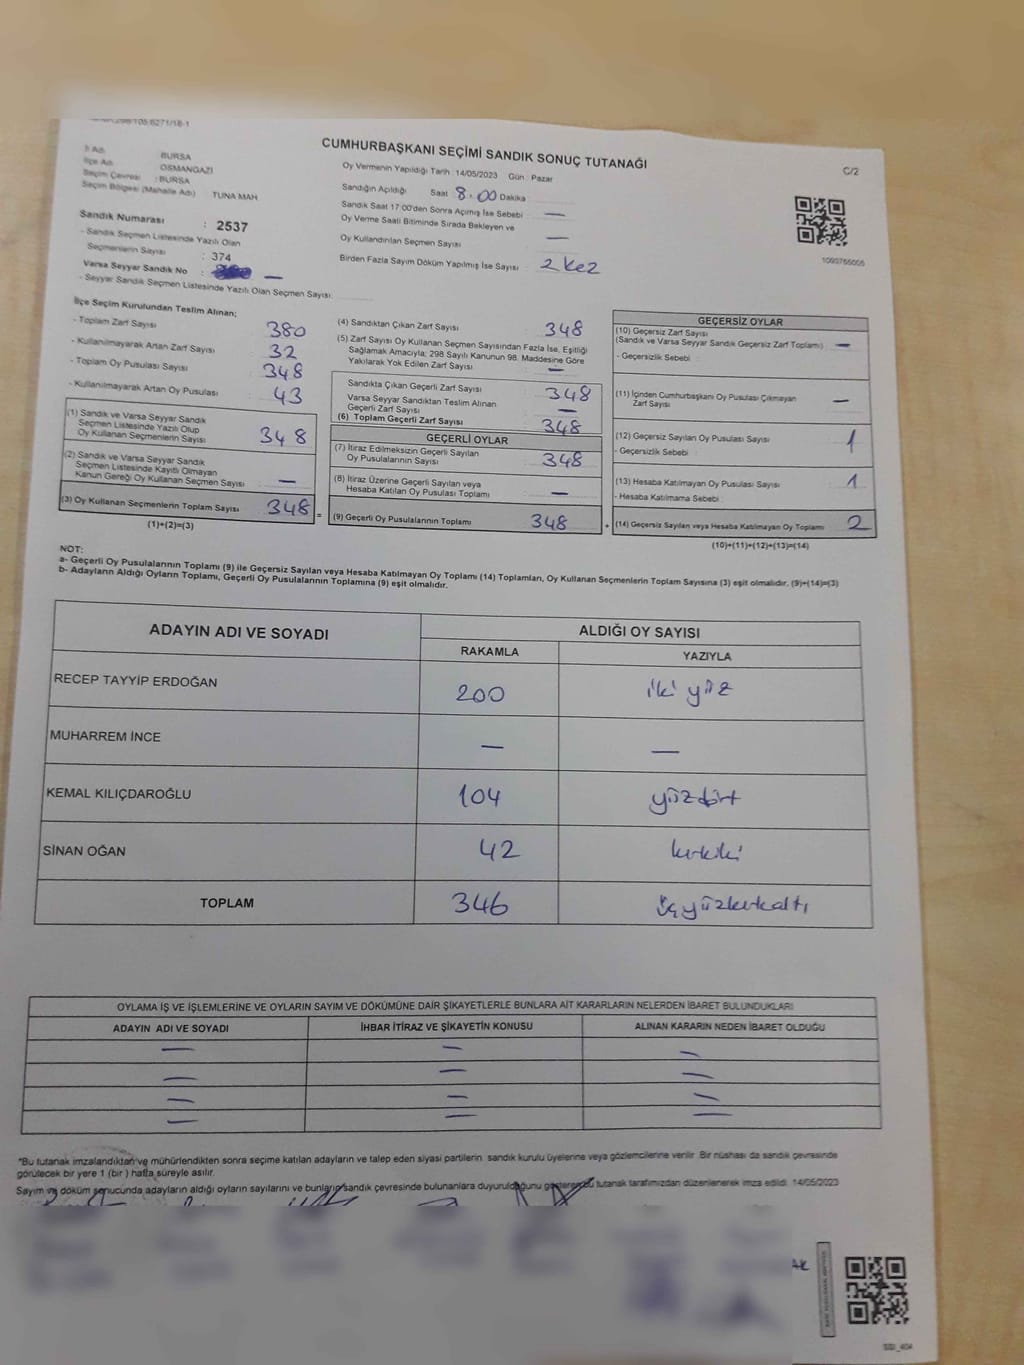 CUMHURBAŞKANI SEÇİMİ SANDIK SONUÇ TUTANAĞI
C/2
İl Adı : BURSA
İlçe Adı : OSMANGAZİ
Seçim Çevresi : BURSA
Seçim Bölgesi (Mahalle Adı) : TUNA MAH
Sandık Numarası : 2537
- Sandık Seçmen Listesinde Yazılı Olan
Seçmenlerin Sayısı : 374
Varsa Seyyar Sandık No : —
- Seyyar Sandık Seçmen Listesinde Yazılı Olan Seçmen Sayısı:
Oy Vermenin Yapıldığı Tarih : 14/05/2023 Gün : Pazar
Sandığın Açıldığı Saat 8.00 Dakika
Sandık Saat 17:00'den Sonra Açılmış İse Sebebi —
Oy Verme Saati Bitiminde Sırada Bekleyen ve
Oy Kullandırılan Seçmen Sayısı —
Birden Fazla Sayım Döküm Yapılmış İse Sayısı : 2 kez
1093766005
İlçe Seçim Kurulundan Teslim Alınan;
- Toplam Zarf Sayısı 380
- Kullanılmayarak Artan Zarf Sayısı 32
- Toplam Oy Pusulası Sayısı 348
- Kullanılmayarak Artan Oy Pusulası 43
(1) Sandık ve Varsa Seyyar Sandık
Seçmen Listesinde Yazılı Olup
Oy Kullanan Seçmenlerin Sayısı 348
(2) Sandık ve Varsa Seyyar Sandık
Seçmen Listesinde Kayıtlı Olmayan
Kanun Gereği Oy Kullanan Seçmen Sayısı —
(3) Oy Kullanan Seçmenlerin Toplam Sayısı 348 =
(1)+(2)=(3)
(4) Sandıktan Çıkan Zarf Sayısı 348
(5) Zarf Sayısı Oy Kullanan Seçmen Sayısından Fazla İse, Eşitliği
Sağlamak Amacıyla; 298 Sayılı Kanunun 98. Maddesine Göre
Yakılarak Yok Edilen Zarf Sayısı —
Sandıkta Çıkan Geçerli Zarf Sayısı 348
Varsa Seyyar Sandıktan Teslim Alınan
Geçerli Zarf Sayısı —
(6) Toplam Geçerli Zarf Sayısı 348
GEÇERLİ OYLAR
(7) İtiraz Edilmeksizin Geçerli Sayılan
Oy Pusulalarının Sayısı 348
(8) İtiraz Üzerine Geçerli Sayılan veya
Hesaba Katılan Oy Pusulası Toplamı —
(9) Geçerli Oy Pusulalarının Toplamı 348 +
GEÇERSİZ OYLAR
(10) Geçersiz Zarf Sayısı
(Sandık ve Varsa Seyyar Sandık Geçersiz Zarf Toplamı) —
- Geçersizlik Sebebi :
(11) İçinden Cumhurbaşkanı Oy Pusulası Çıkmayan
Zarf Sayısı —
(12) Geçersiz Sayılan Oy Pusulası Sayısı 1
- Geçersizlik Sebebi :
(13) Hesaba Katılmayan Oy Pusulası Sayısı 1
- Hesaba Katılmama Sebebi :
(14) Geçersiz Sayılan veya Hesaba Katılmayan Oy Toplamı 2
(10)+(11)+(12)+(13)=(14)
NOT:
a- Geçerli Oy Pusulalarının Toplamı (9) ile Geçersiz Sayılan veya Hesaba Katılmayan Oy Toplamı (14) Toplamları, Oy Kullanan Seçmenlerin Toplam Sayısına (3) eşit olmalıdır. (9)+(14)=(3)
b- Adayların Aldığı Oyların Toplamı, Geçerli Oy Pusulalarının Toplamına (9) eşit olmalıdır.
ADAYIN ADI VE SOYADI ALDIĞI OY SAYISI
RAKAMLA YAZIYLA
RECEP TAYYİP ERDOĞAN 200 iki yüz
MUHARREM İNCE — —
KEMAL KILIÇDAROĞLU 104 yüzdört
SİNAN OĞAN 42 kırkiki
TOPLAM 346 üçyüzkırkaltı
OYLAMA İŞ VE İŞLEMLERİNE VE OYLARIN SAYIM VE DÖKÜMÜNE DAİR ŞİKAYETLERLE BUNLARA AİT KARARLARIN NELERDEN İBARET BULUNDUKLARI
ADAYIN ADI VE SOYADI İHBAR İTİRAZ VE ŞİKAYETİN KONUSU ALINAN KARARIN NEDEN İBARET OLDUĞU
— — —
— — —
— — —
— — —
*Bu tutanak imzalandıktan ve mühürlendikten sonra seçime katılan adayların ve talep eden siyasi partilerin sandık kurulu üyelerine veya gözlemcilerine verilir. Bir nüshası da sandık çevresinde
görülecek bir yere 1 (bir) hafta süreyle asılır.
Sayım ve döküm sonucunda adayların aldığı oyların sayılarını ve bunların sandık çevresinde bulunanlara duyurulduğunu gösteren bu tutanak tarafımızdan düzenlenerek imza edildi. 14/05/2023
AK